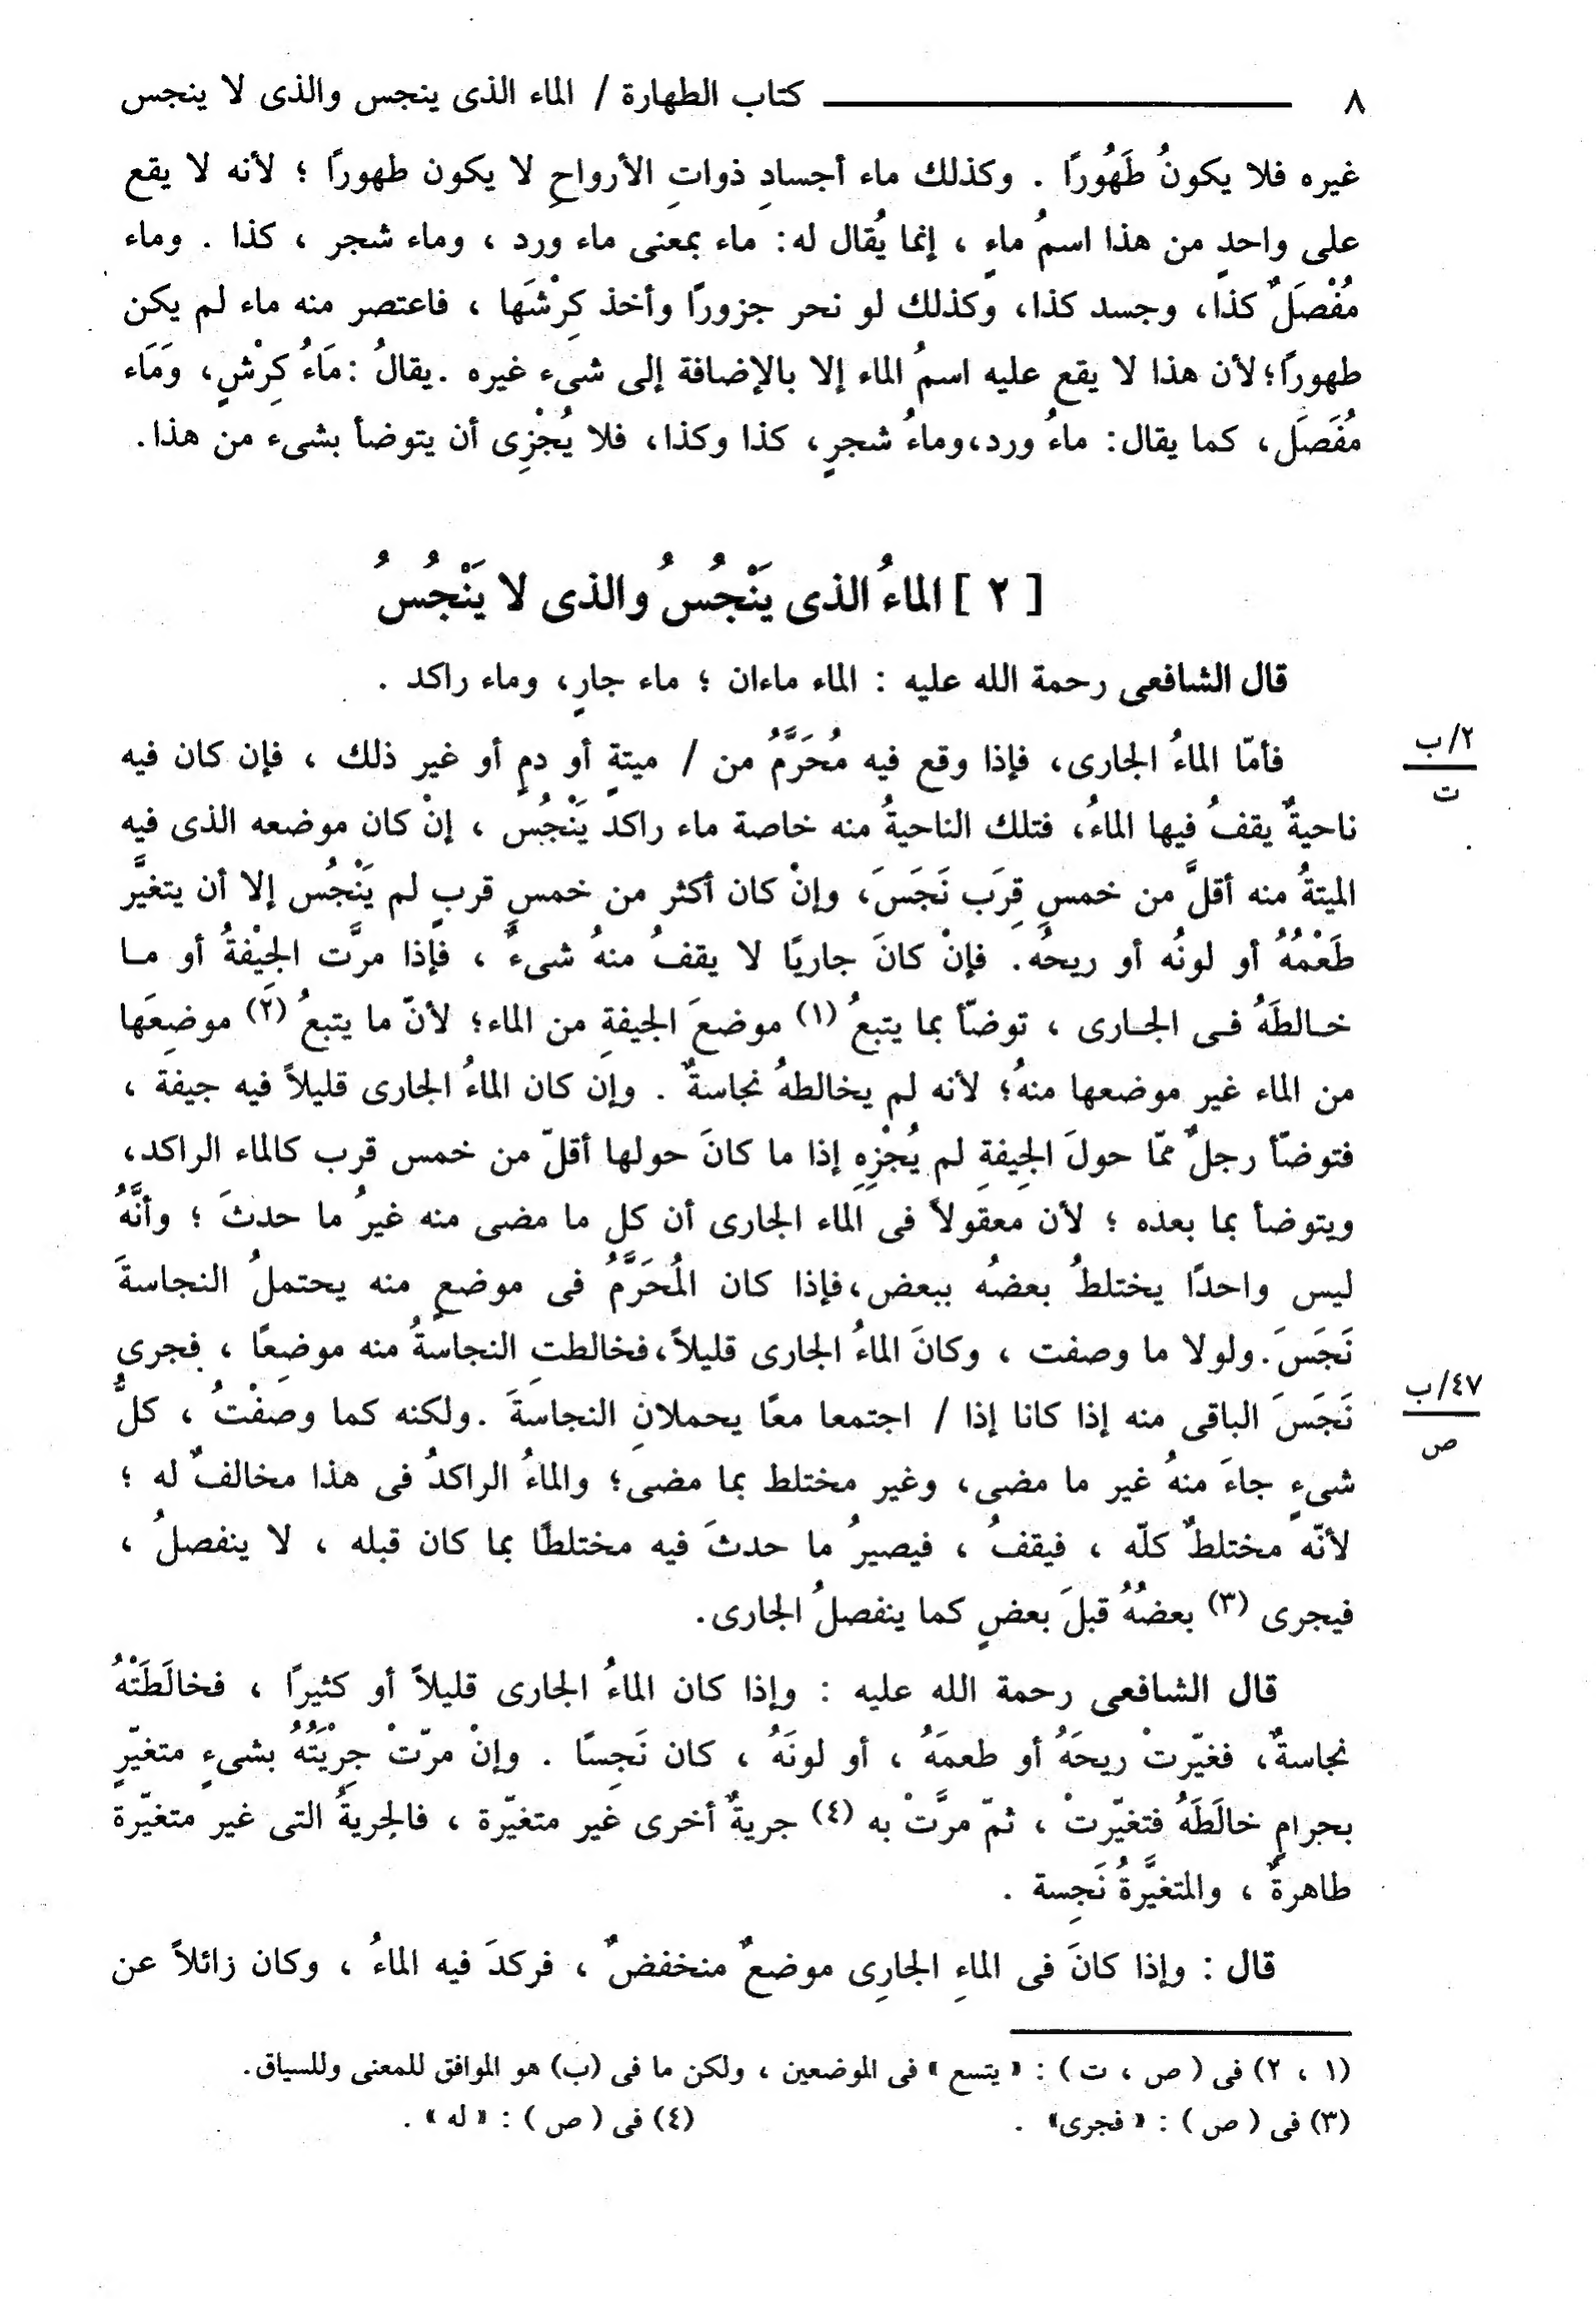 ٨ كتاب الطهارة / الماء الذى ينجس والذى لا ينجس
غيره فلا يكونُ طَهُورًا . وكذلك ماء أجسادِ ذواتِ الأرواحِ لا يكون طهورًا ؛ لأنه لا يقع
على واحدٍ من هذا اسمُ ماءٍ ، إنما يُقال له: ماء بمعنى ماء ورد ، وماء شجر ، كذا . وماء
مُفْصَلٌ كذا، وجسد كذا، وكذلك لو نحر جزورًا وأخذ كِرْشَها ، فاعتصر منه ماء لم يكن
طهورًا؛لأن هذا لا يقع عليه اسمُ الماء إلا بالإضافة إلى شىء غيره .يقالُ :مَاءُ كِرْشٍ، وَمَاء
مُفَصَل، كما يقال: ماءُ ورد،وماءُ شجرٍ، كذا وكذا، فلا يُجْزِى أن يتوضأ بشىء من هذا.
[ ٢ ] الماءُ الذى يَنْجُسُ والذى لا يَنْجُسُ
قال الشافعى رحمة الله عليه : الماء ماءان ؛ ماء جارٍ، وماء راكد .
فأمّا الماءُ الجارى، فإذا وقع فيه مُحَرَّمُ من / ميتةٍ أو دمٍ أو غير ذلك ، فإن كان فيه
٢/ب
ت
ناحيةٌ يقفُ فيها الماءُ، فتلك الناحيةُ منه خاصة ماء راكد يَنْجُس ، إنْ كان موضعه الذى فيه
الميتةُ منه أقلَّ من خمسِ قِرَب نَجَسَ، وإنْ كان أكثر من خمسِ قربٍ لم يَنْجُس إلا أن يتغيَّر
طَعْمُهُ أو لونُه أو ريحُه. فإنْ كانَ جاريًا لا يقفُ منهُ شىءٌ ، فإذا مرَّت الجِيْفةُ أو مـا
خـالطَهُ فـى الجـارى ، توضّأ بما يتبعُ (١) موضعَ الجيفةِ من الماء؛ لأنّ ما يتبعُ (٢) موضِعَها
من الماء غير موضعها منهُ؛ لأنه لم يخالطهُ نجاسةٌ . وإن كان الماءُ الجارى قليلاً فيه جيفة ،
فتوضّأ رجلٌ ممّا حولَ الجِيفةِ لم يُجْزِهِ إذا ما كانَ حولها أقلّ من خمس قرب كالماء الراكد،
ويتوضأ بما بعده ؛ لأن معقولاً فى الماء الجارى أن كل ما مضى منه غيرُ ما حدثَ ؛ وأنَّهُ
ليس واحدًا يختلطُ بعضُه ببعض،فإذا كان المُحَرَّمُ فى موضعٍ منه يحتملُ النجاسةَ
نَجَسَ.ولولا ما وصفت ، وكانَ الماءُ الجارى قليلاً،فخالطتِ النجاسةُ منه موضِعًا ، فجرى
نَجَسَ الباقى منه إذا كانا إذا / اجتمعا معًا يحملانِ النجاسَةَ .ولكنه كما وصفْتُ ، كلُّ
٤٧/ب
ص
شىءٍ جاءَ منهُ غير ما مضى، وغير مختلط بما مضى؛ والماءُ الراكدُ فى هذا مخالفٌ له ؛
لأنّه مختلطٌ كلّه ، فيقفُ ، فيصيرُ ما حدثَ فيه مختلطًا بما كان قبله ، لا ينفصلُ ،
فيجرى (٣) بعضُهُ قبلَ بعضٍ كما ينفصلُ الجارى.
قال الشافعى رحمة الله عليه : وإذا كان الماءُ الجارى قليلاً أو كثيرًا ، فخالَطَتْهُ
نجاسةٌ، فغيّرتْ ريحَهُ أو طعمَهُ ، أو لونَهُ ، كان نَجِسًا . وإنْ مرّتْ جِرْيَتُهُ بشىءٍ متغيّرٍ
بحرامٍ خالَطَهُ فتغيّرتْ ، ثمّ مرَّتْ به (٤) جريةٌ أخرى غير متغيّرة ، فالجِريةُ التى غير متغيّرة
طاهرةٌ ، والمتغيَّرةُ نَجِسة .
قال : وإذا كانَ فى الماءِ الجارِى موضعٌ منخفضٌ ، فركدَ فيه الماءُ ، وكان زائلاً عن
(١ ، ٢) فى ( ص ، ت ) : « يتسع » فى الموضعين ، ولكن ما فى (ب) هو الموافق للمعنى وللسياق.
(٣) فى ( ص ) : « فجرى» . (٤) فى ( ص ) : « له » .